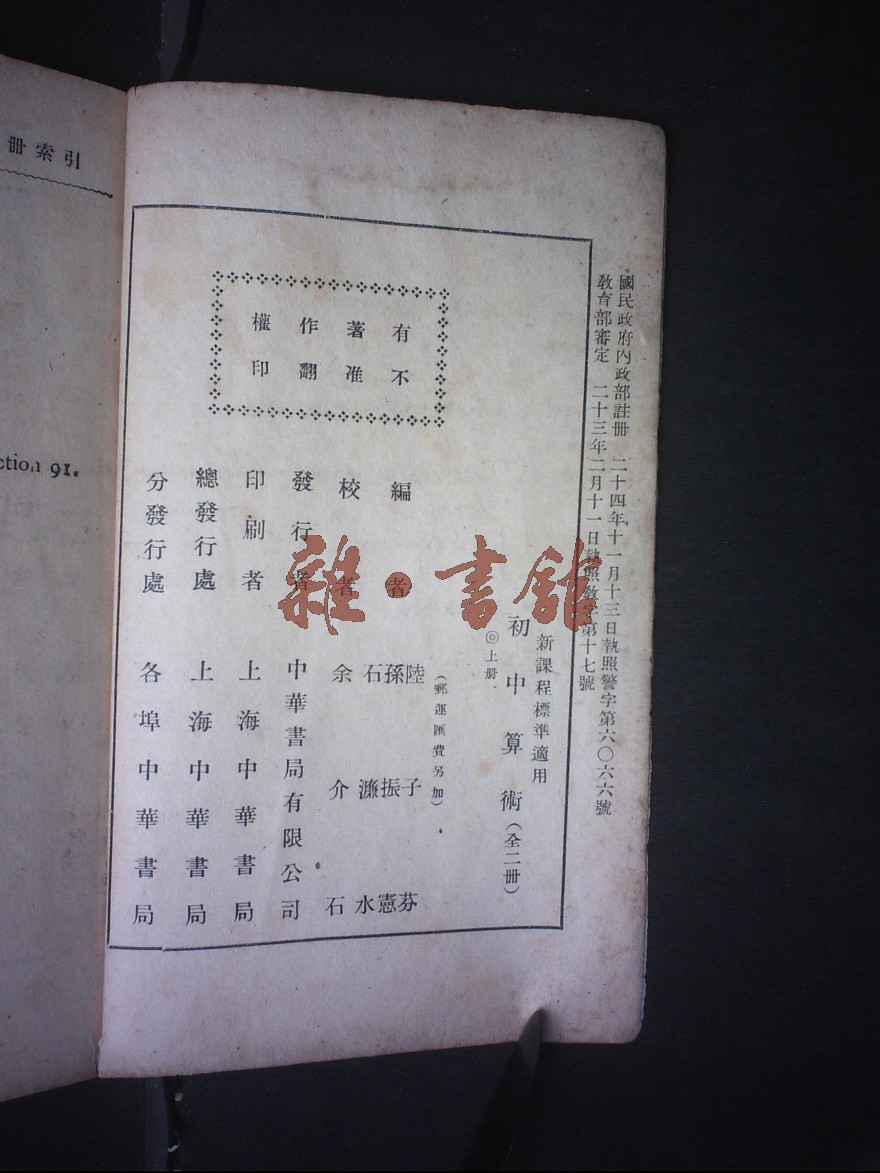 國民政府內政部註冊　二十四年十一月十三日執照警字第六〇六六號
教育部審定　二十三年二月十一日執照教字第十七號
新課程標準適用
初中算術（全二冊）
◎上冊
（郵運匯費另加）
有著作權
不准翻印
編者　陸子芬
孫振憲
石濂水
校者　余介石
發行者　中華書局有限公司
印刷者　上海中華書局
總發行處　上海中華書局
分發行處　各埠中華書局
冊索引
ction 91.
雜·書館